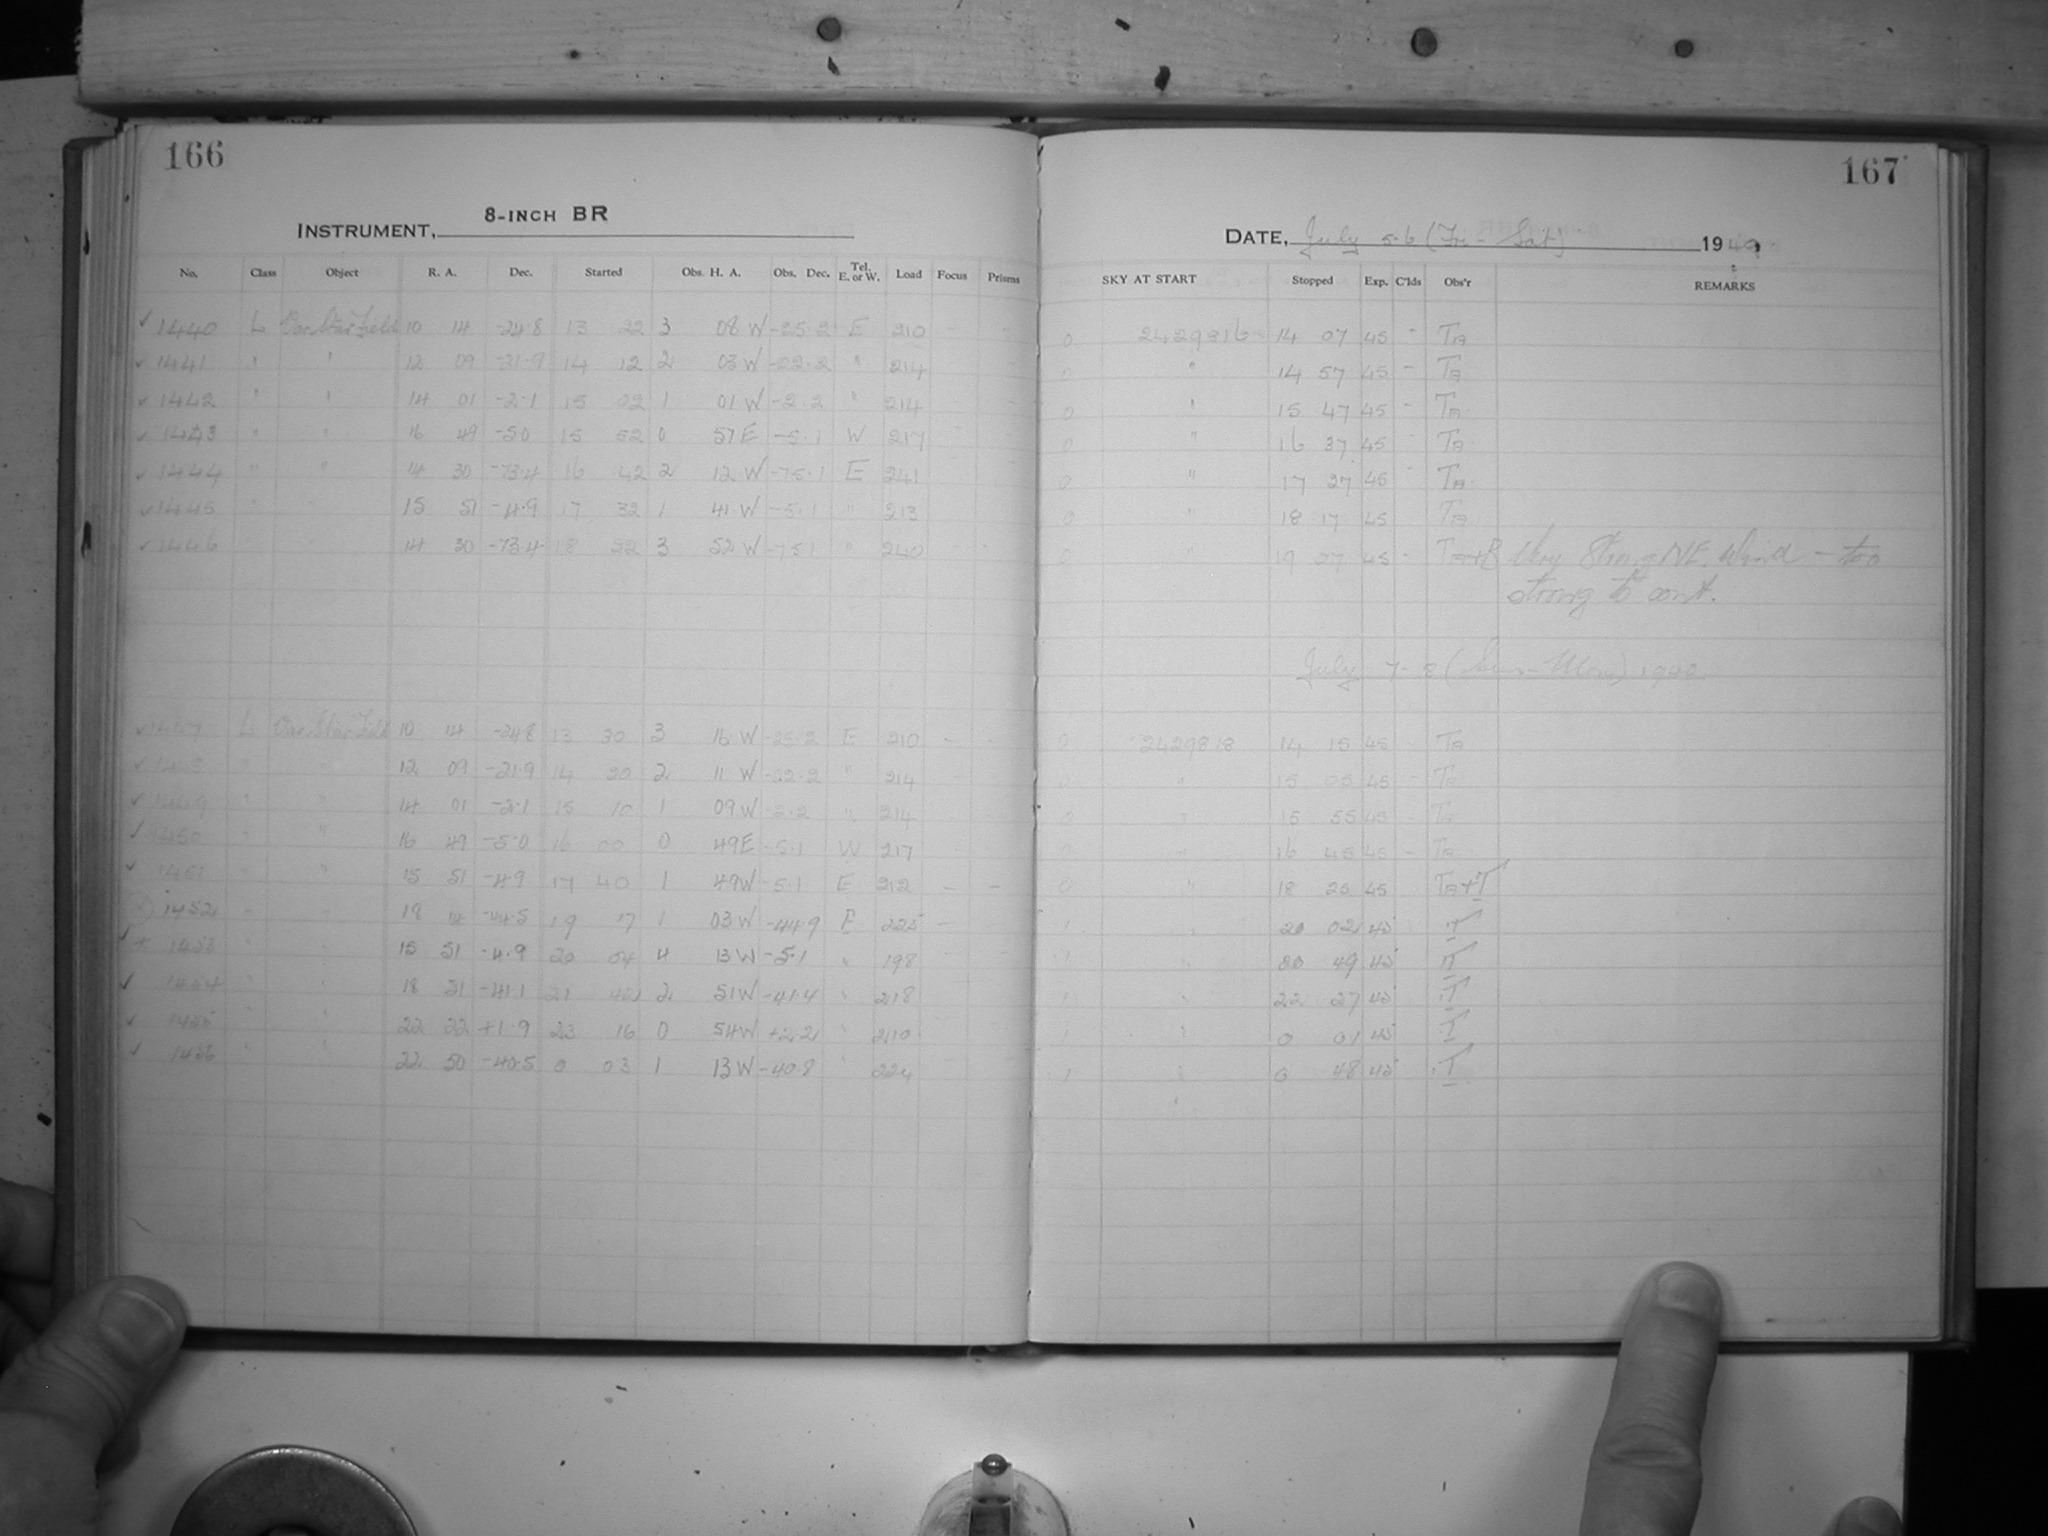 166
167
8-INCH BR
INSTRUMENT,
DATE, July 5-6 (Fri - Sat) 1940
No. Class Object R. A. Dec. Started Obs. H. A. Obs. Dec. Tel. E. or W. Load Focus Prisms SKY AT START Stopped Exp. C'lds Obs'r REMARKS
✓ 1440 L Var. Star Field 10 14 -24.8 13 22 3 08 W -25.2 E 210 - 0 2429816 14 07 45 - TA
✓ 1441 " " 12 09 -21.9 14 12 2 03 W -22.2 " 214 0 " 14 57 45 - TA
✓ 1442 " " 14 01 -2.1 15 02 1 01 W -2.2 " 214 0 " 15 47 45 - TA
✓ 1443 " " 16 49 -5.0 15 52 0 57 E -5.1 W 217 0 " 16 37 45 - TA
✓ 1444 " " 14 30 -73.4 16 42 2 12 W -75.1 E 241 0 " 17 27 45 - TA
✓ 1445 " " 15 51 -4.9 17 32 1 41 W -5.1 " 213 0 " 18 17 45 TA
✓ 1446 " " 14 30 -73.4 18 22 3 52 W -75.1 " 240 0 " 19 27 45 - TA+B Very Strong NE. Wind - too
strong to cont.
July 7-8 (Sun - Mon) 1940
✓ 1447 L Var. Star Field 10 14 -24.8 13 30 3 16 W -25.2 E 210 - 0 2429818 14 15 45 - TA
✓ 1448 " " 12 09 -21.9 14 20 2 11 W -22.2 " 214 0 " 15 05 45 - TA
✓ 1449 " " 14 01 -2.1 15 10 1 09 W -2.2 " 214 0 " 15 55 45 - TA
✓ 1450 " " 16 49 -5.0 16 00 0 49 E -5.1 W 217 0 " 16 45 45 - TA
✓ 1451 " " 15 51 -4.9 17 40 1 49 W -5.1 E 212 - - 0 " 18 25 45 TA+T
1452 " " 18 14 -44.5 19 17 1 03 W -44.9 E 225 - 1 " 20 02 45 T
1453 " " 15 51 -4.9 20 04 4 13 W -5.1 " 198 " 20 49 45 T
✓ 1454 " " 18 51 -41.1 21 42 2 51 W -41.4 " 218 1 " 22 27 45 T
✓ 1455 " " 22 22 +1.9 23 16 0 54 W +2.2 " 210 1 " 0 01 45 T
✓ 1456 " " 22 50 -40.5 0 03 1 13 W -40.8 " 224 1 " 0 48 45 T